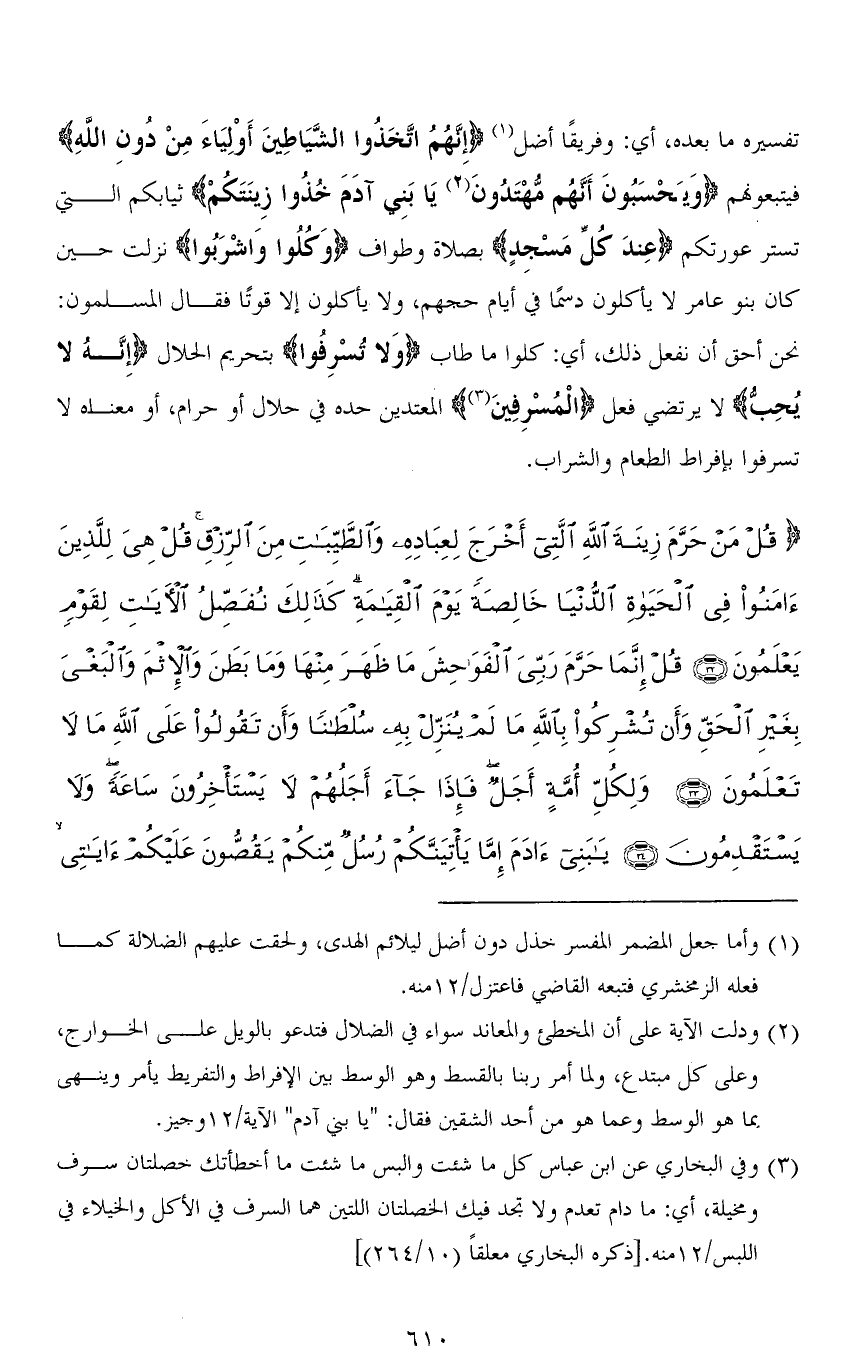 تفسيره ما بعده، أي: وفريقًا أضل(١) ﴿إِنَّهُمُ اتَّخَذُوا الشَّيَاطِينَ أَوْلِيَاءَ مِنْ دُونِ اللَّهِ﴾
فيتبعونهم ﴿وَيَحْسَبُونَ أَنَّهُم مُّهْتَدُونَ(٢) يَا بَنِي آدَمَ خُذُوا زِينَتَكُمْ﴾ ثيابكم الـــتي
تستر عورتكم ﴿عِندَ كُلِّ مَسْجِدٍ﴾ بصلاة وطواف ﴿وَكُلُوا وَاشْرَبُوا﴾ نزلت حـــين
كان بنو عامر لا يأكلون دسمًا في أيام حجهم، ولا يأكلون إلا قوتًا فقـــال المســـلمون:
نحن أحق أن نفعل ذلك، أي: كلوا ما طاب ﴿وَلا تُسْرِفُوا﴾ بتحريم الحلال ﴿إِنَّـــهُ لا
يُحِبُّ﴾ لا يرتضي فعل ﴿الْمُسْرِفِينَ(٣)﴾ المعتدين حده في حلال أو حرام، أو معنـــاه لا
تسرفوا بإفراط الطعام والشراب.
﴿ قُلْ مَنْ حَرَّمَ زِينَةَ ٱللَّهِ ٱلَّتِىٓ أَخْرَجَ لِعِبَادِهِۦ وَٱلطَّيِّبَـٰتِ مِنَ ٱلرِّزْقِ ۚ قُلْ هِىَ لِلَّذِينَ
ءَامَنُوا۟ فِى ٱلْحَيَوٰةِ ٱلدُّنْيَا خَالِصَةً يَوْمَ ٱلْقِيَـٰمَةِ ۗ كَذَٰلِكَ نُفَصِّلُ ٱلْأَيَـٰتِ لِقَوْمٍ
يَعْلَمُونَ ٣٢ قُلْ إِنَّمَا حَرَّمَ رَبِّىَ ٱلْفَوَٰحِشَ مَا ظَهَرَ مِنْهَا وَمَا بَطَنَ وَٱلْإِثْمَ وَٱلْبَغْىَ
بِغَيْرِ ٱلْحَقِّ وَأَن تُشْرِكُوا۟ بِٱللَّهِ مَا لَمْ يُنَزِّلْ بِهِۦ سُلْطَـٰنًا وَأَن تَقُولُوا۟ عَلَى ٱللَّهِ مَا لَا
تَعْلَمُونَ ٣٣ وَلِكُلِّ أُمَّةٍ أَجَلٌ ۖ فَإِذَا جَآءَ أَجَلُهُمْ لَا يَسْتَأْخِرُونَ سَاعَةً ۖ وَلَا
يَسْتَقْدِمُونَ ٣٤ يَـٰبَنِىٓ ءَادَمَ إِمَّا يَأْتِيَنَّكُمْ رُسُلٌ مِّنكُمْ يَقُصُّونَ عَلَيْكُمْ ءَايَـٰتِى ۙ
(١) وأما جعل المضمر المفسر خذل دون أضل ليلائم الهدى، ولحقت عليهم الضلالة كمـــا
فعله الزمخشري فتبعه القاضي فاعتزل/١٢منه.
(٢) ودلت الآية على أن المخطئ والمعاند سواء في الضلال فتدعو بالويل علـــى الخـــوارج،
وعلى كل مبتدع، ولما أمر ربنا بالقسط وهو الوسط بين الإفراط والتفريط يأمر وينـــهى
بما هو الوسط وعما هو من أحد الشقين فقال: "يا بني آدم" الآية/١٢وجيز.
(٣) وفي البخاري عن ابن عباس كل ما شئت والبس ما شئت ما أخطأتك خصلتان ســـرف
ومخيلة، أي: ما دام تعدم ولا تجد فيك الخصلتان اللتين هما السرف في الأكل والخيلاء في
اللبس/١٢منه.[ذكره البخاري معلقاً (٢٦٤/١٠)]
٦١٠